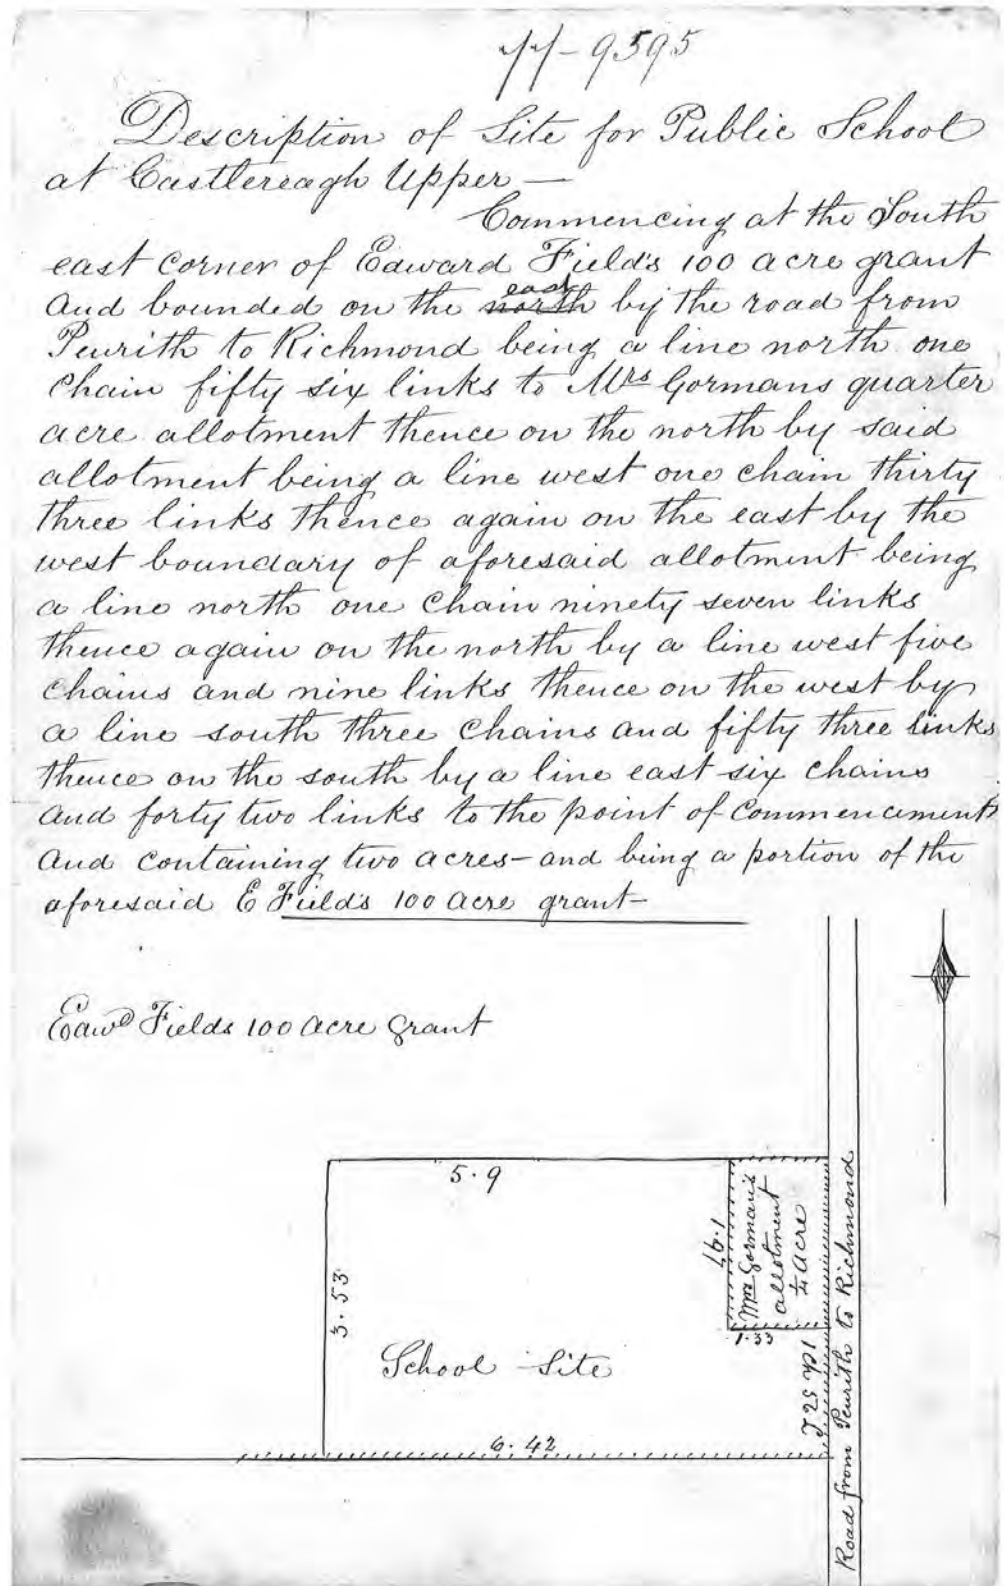 77-9595
Description of Site for Public School
at Castlereagh Upper —
Commencing at the South
east corner of Edward Field's 100 acre grant
and bounded on the north east by the road from
Penrith to Richmond being a line north one
chain fifty six links to Mrs Gormans quarter
acre allotment thence on the north by said
allotment being a line west one chain thirty
three links thence again on the east by the
west boundary of aforesaid allotment being
a line north one chain ninety seven links
thence again on the north by a line west five
chains and nine links thence on the west by
a line south three chains and fifty three links
thence on the south by a line east six chains
and forty two links to the point of Commencement
and containing two acres - and being a portion of the
aforesaid E Field's 100 acre grant -
Edwd Fields 100 acre Grant
5.9
1.97
Mrs Gorman's
allotment
¼ acre
3.53
1.33
School Site
6.42
Road from Penrith to Richmond